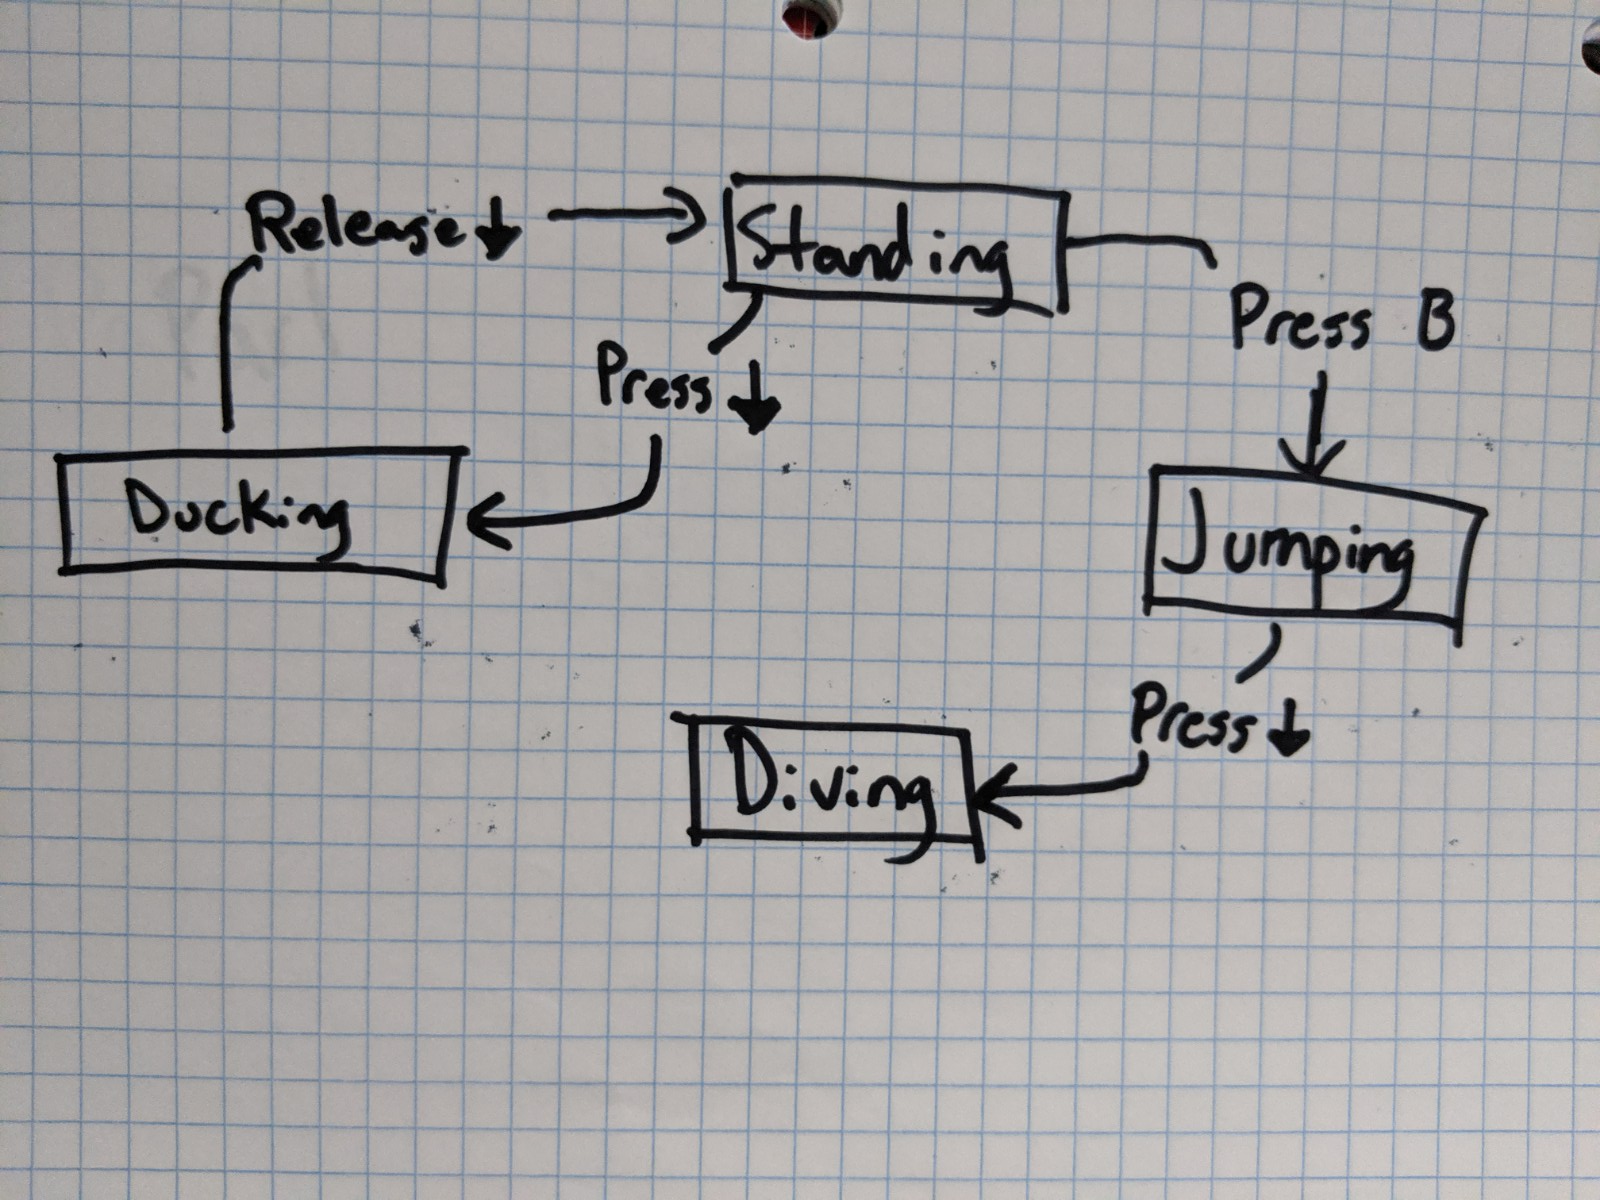 Release ↓
Standing
Press B
Press ↓
Ducking
Jumping
Press ↓
Diving